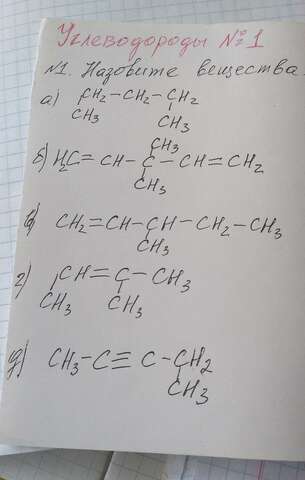 Углеводороды №1
№1. Назовите вещества
а) CH₂–CH₂–CH₂
CH₃ CH₃
CH₃
б) H₂C=CH–C–CH=CH₂
CH₃
в) CH₂=CH–CH–CH₂–CH₃
CH₃
г) CH=C–CH₃
CH₃ CH₃
д) CH₃–C≡C–CH₂
CH₃